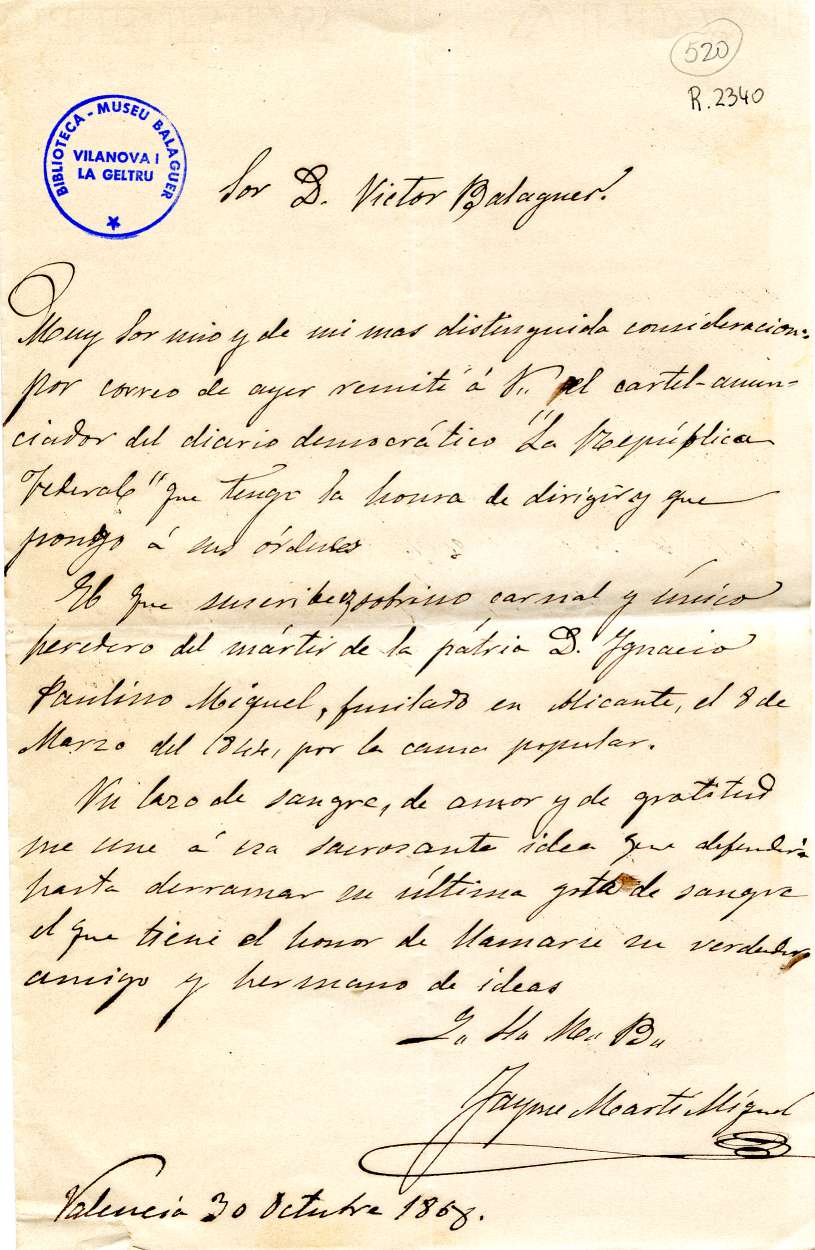 520
R.2340
BIBLIOTECA - MUSEU BALAGUER
VILANOVA I
LA GELTRU
Sor D. Victor Balaguer.
Muy Sor mio y de mi mas distinguida consideracion:
por correo de ayer remití á V.. el cartel-anun-
ciador del diario democrático "La República
Federal" que tengo la honra de dirigir y que
pongo á sus órdenes
El que suscribe es sobrino carnal y único
heredero del mártir de la pátria D. Ignacio
Paulino Miguel, fusilado en Alicante, el 8 de
Marzo del 1844, por la causa popular.
Un lazo de sangre, de amor y de gratitud
me une á esa sacrosanta idea que defenderá
hasta derramar su última gota de sangre
el que tiene el honor de llamarse su verdadero
amigo y hermano de ideas
Jayme Martí Miguel
Valencia 30 Octubre 1868.